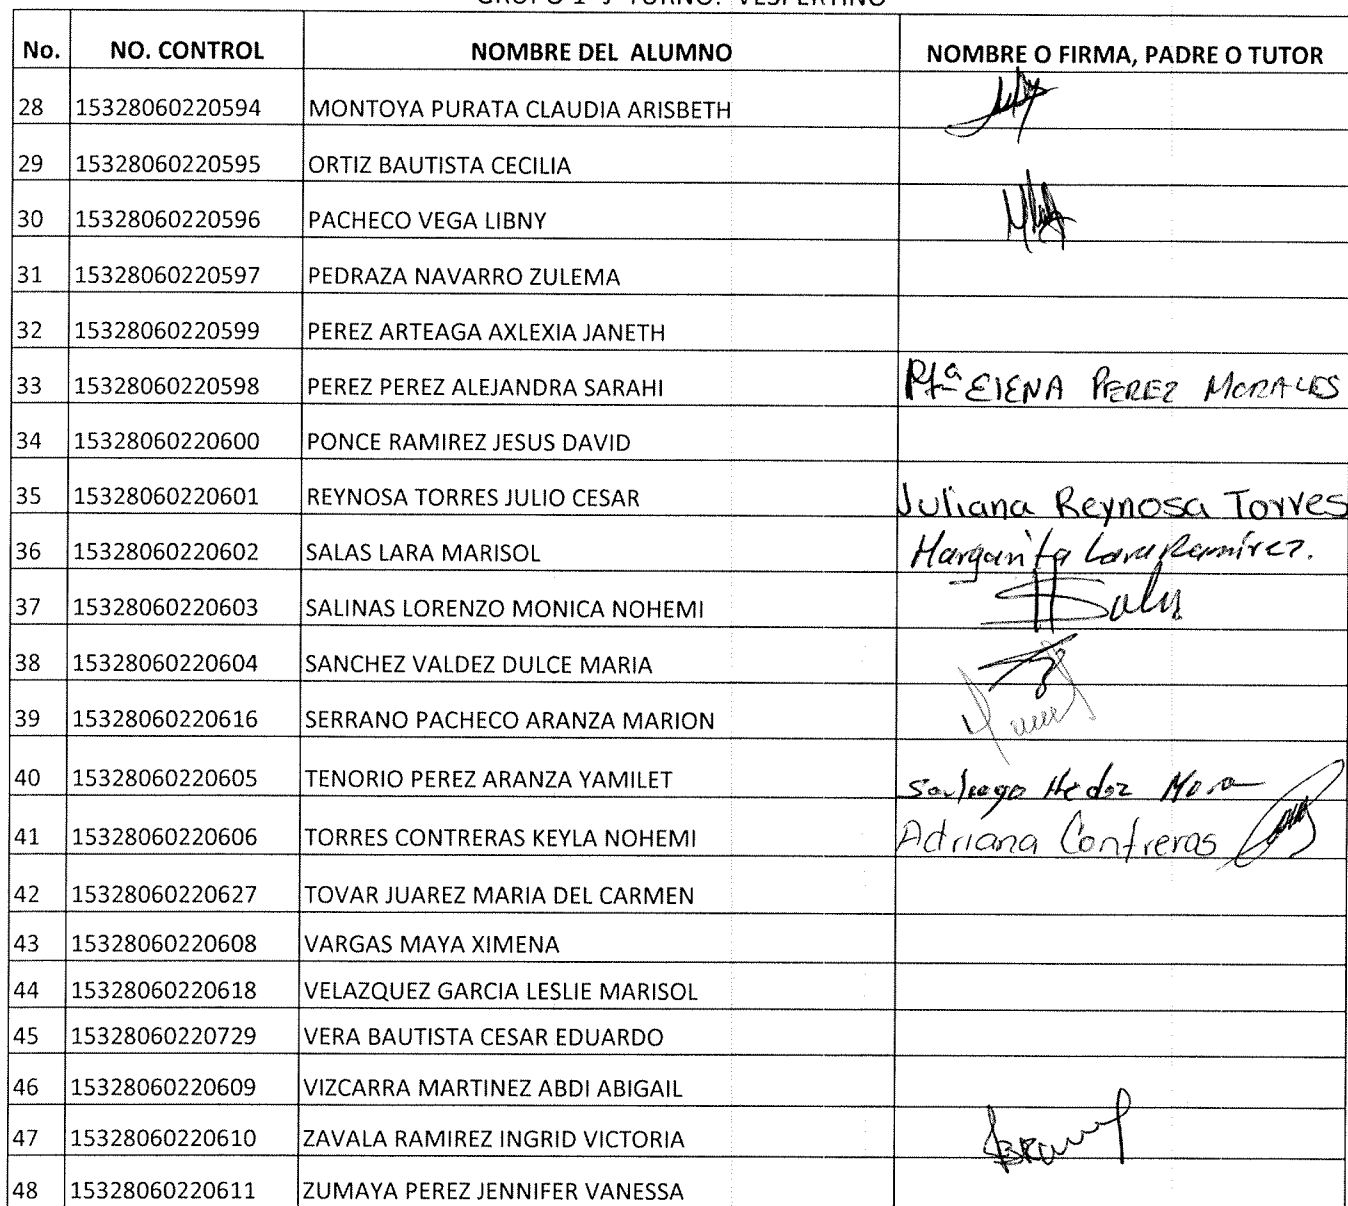 GRUPO 1 J TURNO: VESPERTINO
No. NO. CONTROL NOMBRE DEL ALUMNO NOMBRE O FIRMA, PADRE O TUTOR
28 15328060220594 MONTOYA PURATA CLAUDIA ARISBETH
29 15328060220595 ORTIZ BAUTISTA CECILIA
30 15328060220596 PACHECO VEGA LIBNY
31 15328060220597 PEDRAZA NAVARRO ZULEMA
32 15328060220599 PEREZ ARTEAGA AXLEXIA JANETH
33 15328060220598 PEREZ PEREZ ALEJANDRA SARAHI ElENA PEREZ MORALES
34 15328060220600 PONCE RAMIREZ JESUS DAVID
35 15328060220601 REYNOSA TORRES JULIO CESAR Juliana Reynosa Torres
36 15328060220602 SALAS LARA MARISOL Margarita Lara Ramírez.
37 15328060220603 SALINAS LORENZO MONICA NOHEMI
38 15328060220604 SANCHEZ VALDEZ DULCE MARIA
39 15328060220616 SERRANO PACHECO ARANZA MARION
40 15328060220605 TENORIO PEREZ ARANZA YAMILET
41 15328060220606 TORRES CONTRERAS KEYLA NOHEMI Adriana Contreras
42 15328060220627 TOVAR JUAREZ MARIA DEL CARMEN
43 15328060220608 VARGAS MAYA XIMENA
44 15328060220618 VELAZQUEZ GARCIA LESLIE MARISOL
45 15328060220729 VERA BAUTISTA CESAR EDUARDO
46 15328060220609 VIZCARRA MARTINEZ ABDI ABIGAIL
47 15328060220610 ZAVALA RAMIREZ INGRID VICTORIA
48 15328060220611 ZUMAYA PEREZ JENNIFER VANESSA